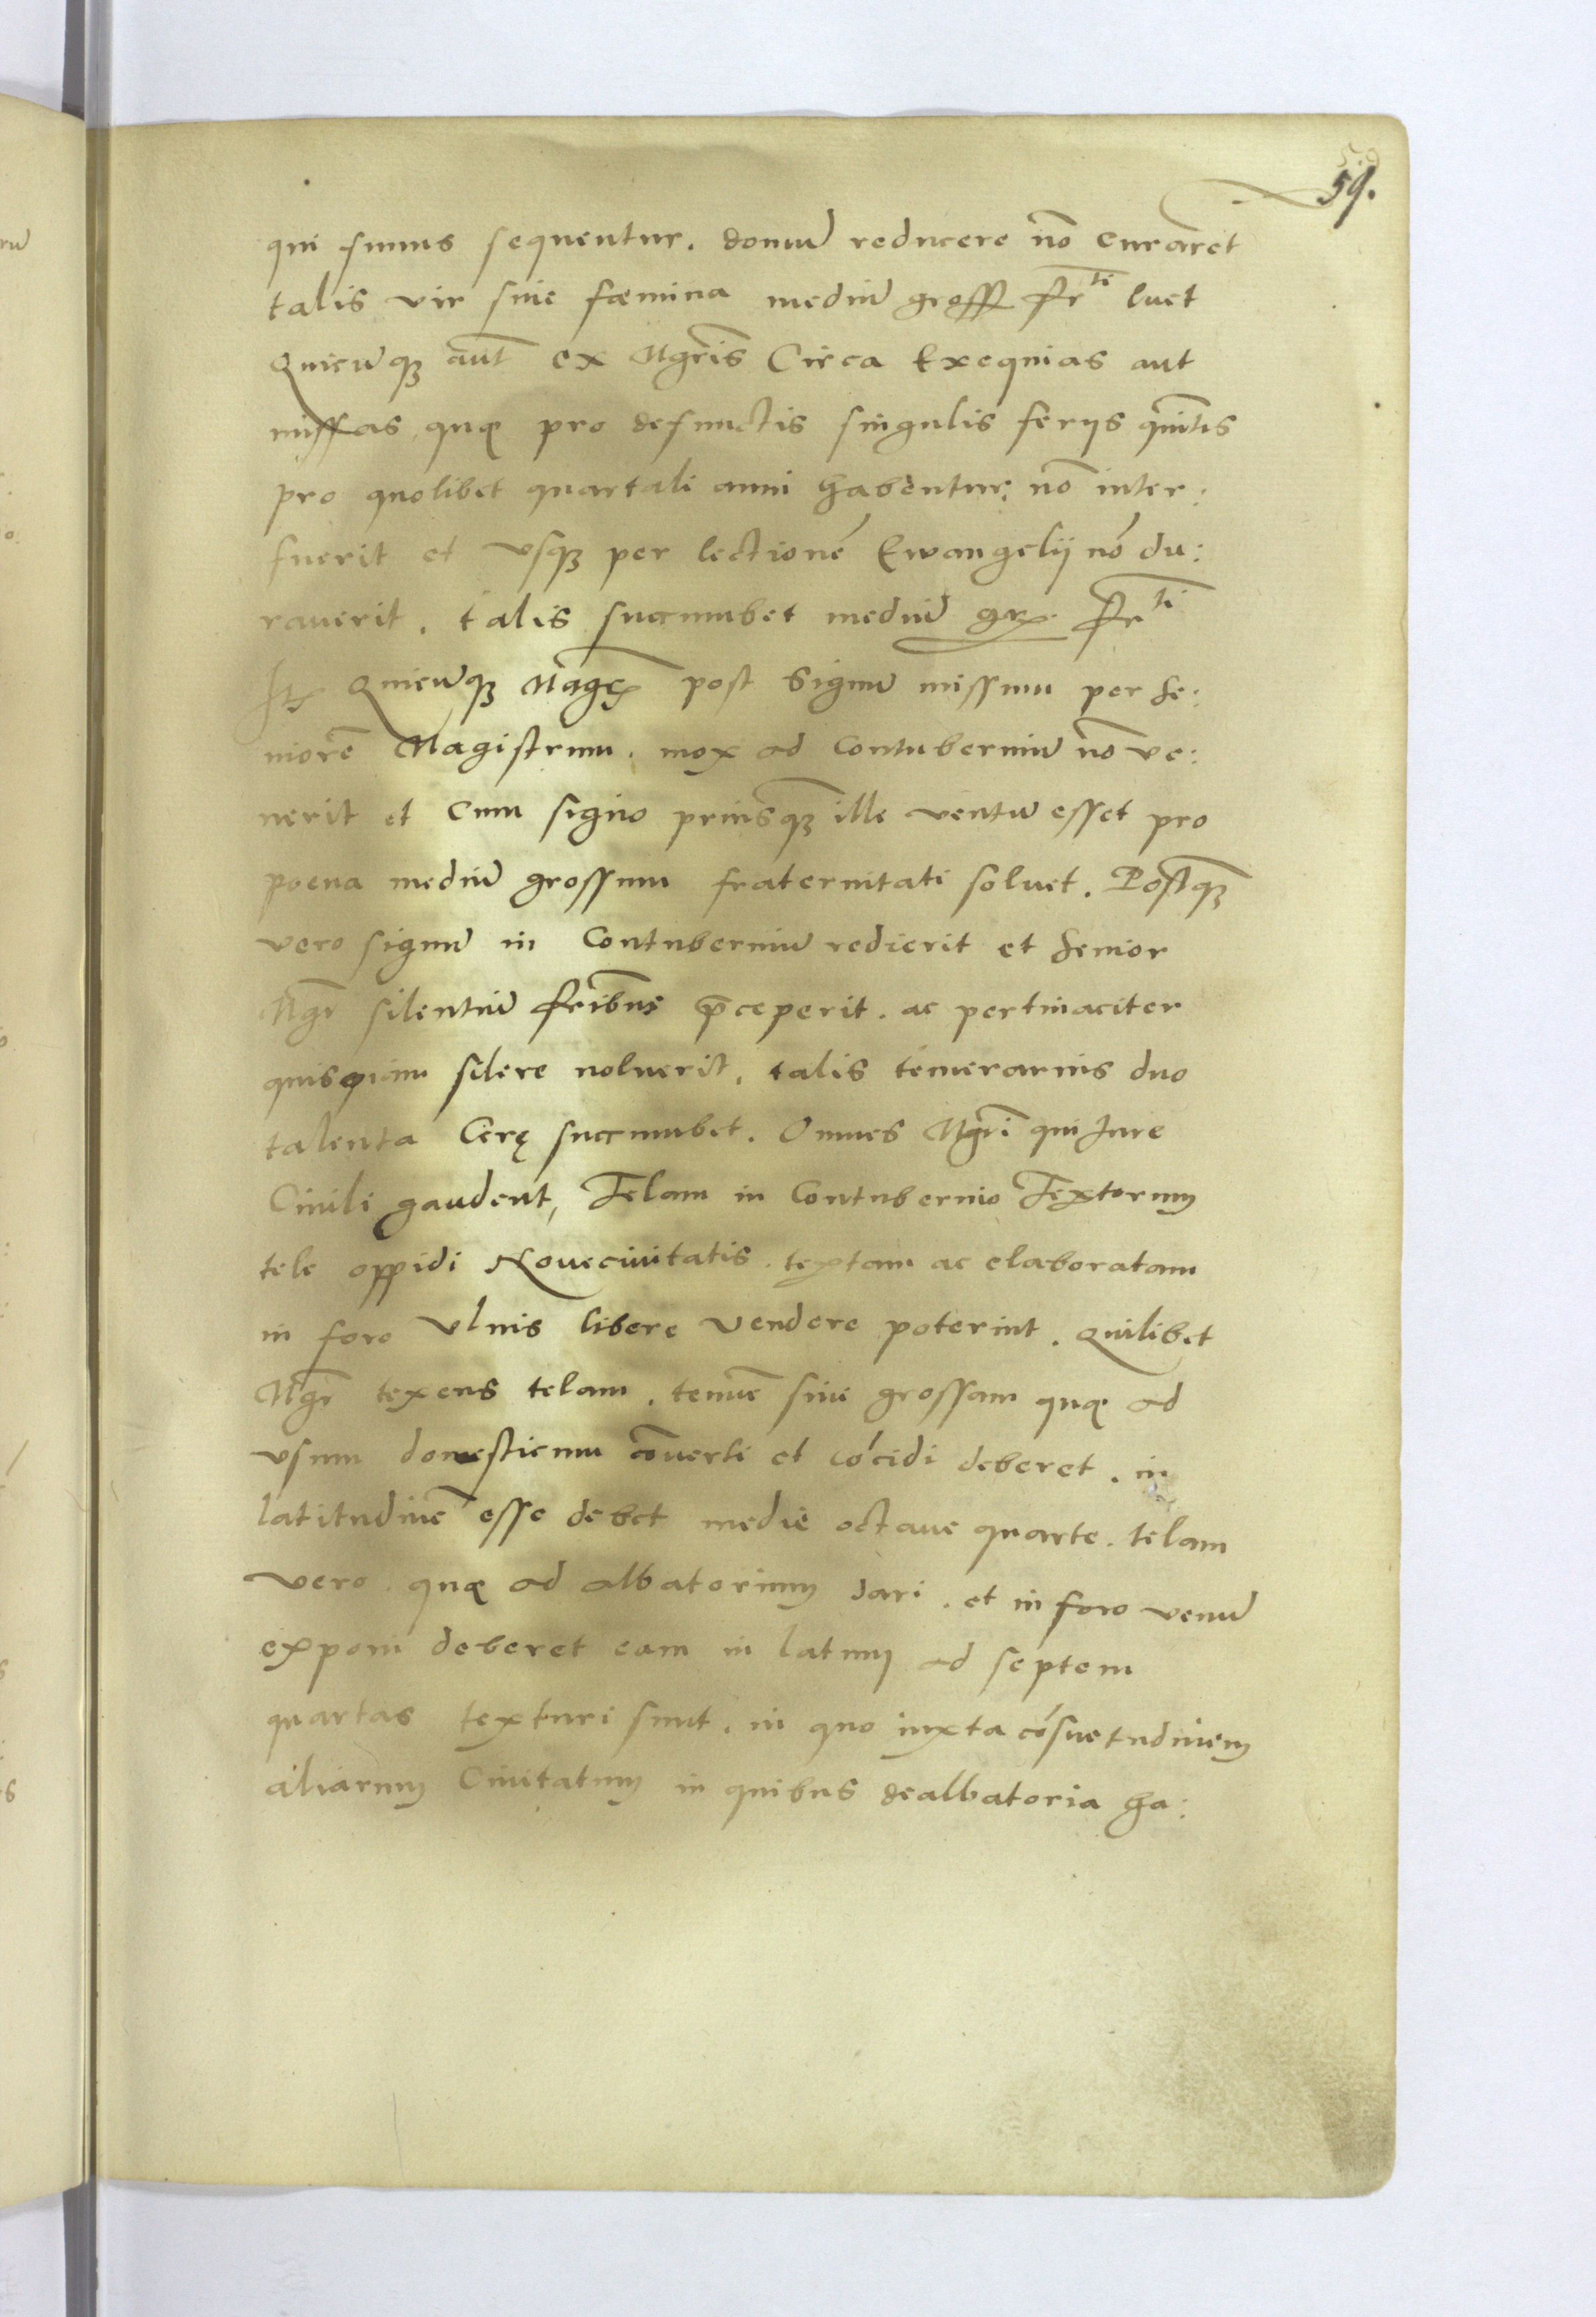 59.
qui funus sequentur. domū reducere nō curaret
talis vir siue fœmina mediū gross frti luet
Quicūqȝ aūt ex Mgr̄is Circa Exequias aut
missas, quæ pro defunctis singulis ferijs quītis
pro quolibet quartali anni habentur, nō inter:
fuerit et vsqȝ per lectionē Ewangelij nō du:
rauerit. talis succumbet mediū gr frti
Itē Quicūqȝ Mage post Signū missum per Se:
niorē Magistrum. mox ad Contuberniū nō ve:
nerit et Cum signo priusqȝ ille ventū esset pro
poena mediū grossum fraternitati soluet. Postqȝ
vero signū in Contuberniū redierit et Senior
Mgr̄ silentiū fr̄ibus p̄ceperit. ac pertinaciter
quispiam silere noluerit, talis temerarius duo
talenta Cerę succumbet. Omnes Mgr̄i qui Jure
Ciuili gaudent, Telam in Contubernio Textorum
tele oppidi Noueciuitatis. textam ac elaboratam
in foro Vlnis libere Vendere poterint. Quilibet
Mgr̄ texens telam. tenuē siue grossam quæ ad
vsum domesticum cōuerti et cōcidi deberet. in
latitudinē esse debet medie octaue quarte. telam
vero. quæ ad albatorium dari. et in foro venū
exponi deberet eam in latum ad septem
quartas texturi sunt. in quo iuxta cōsuetudinem
aliarum Ciuitatum in quibus dealbatoria ha: